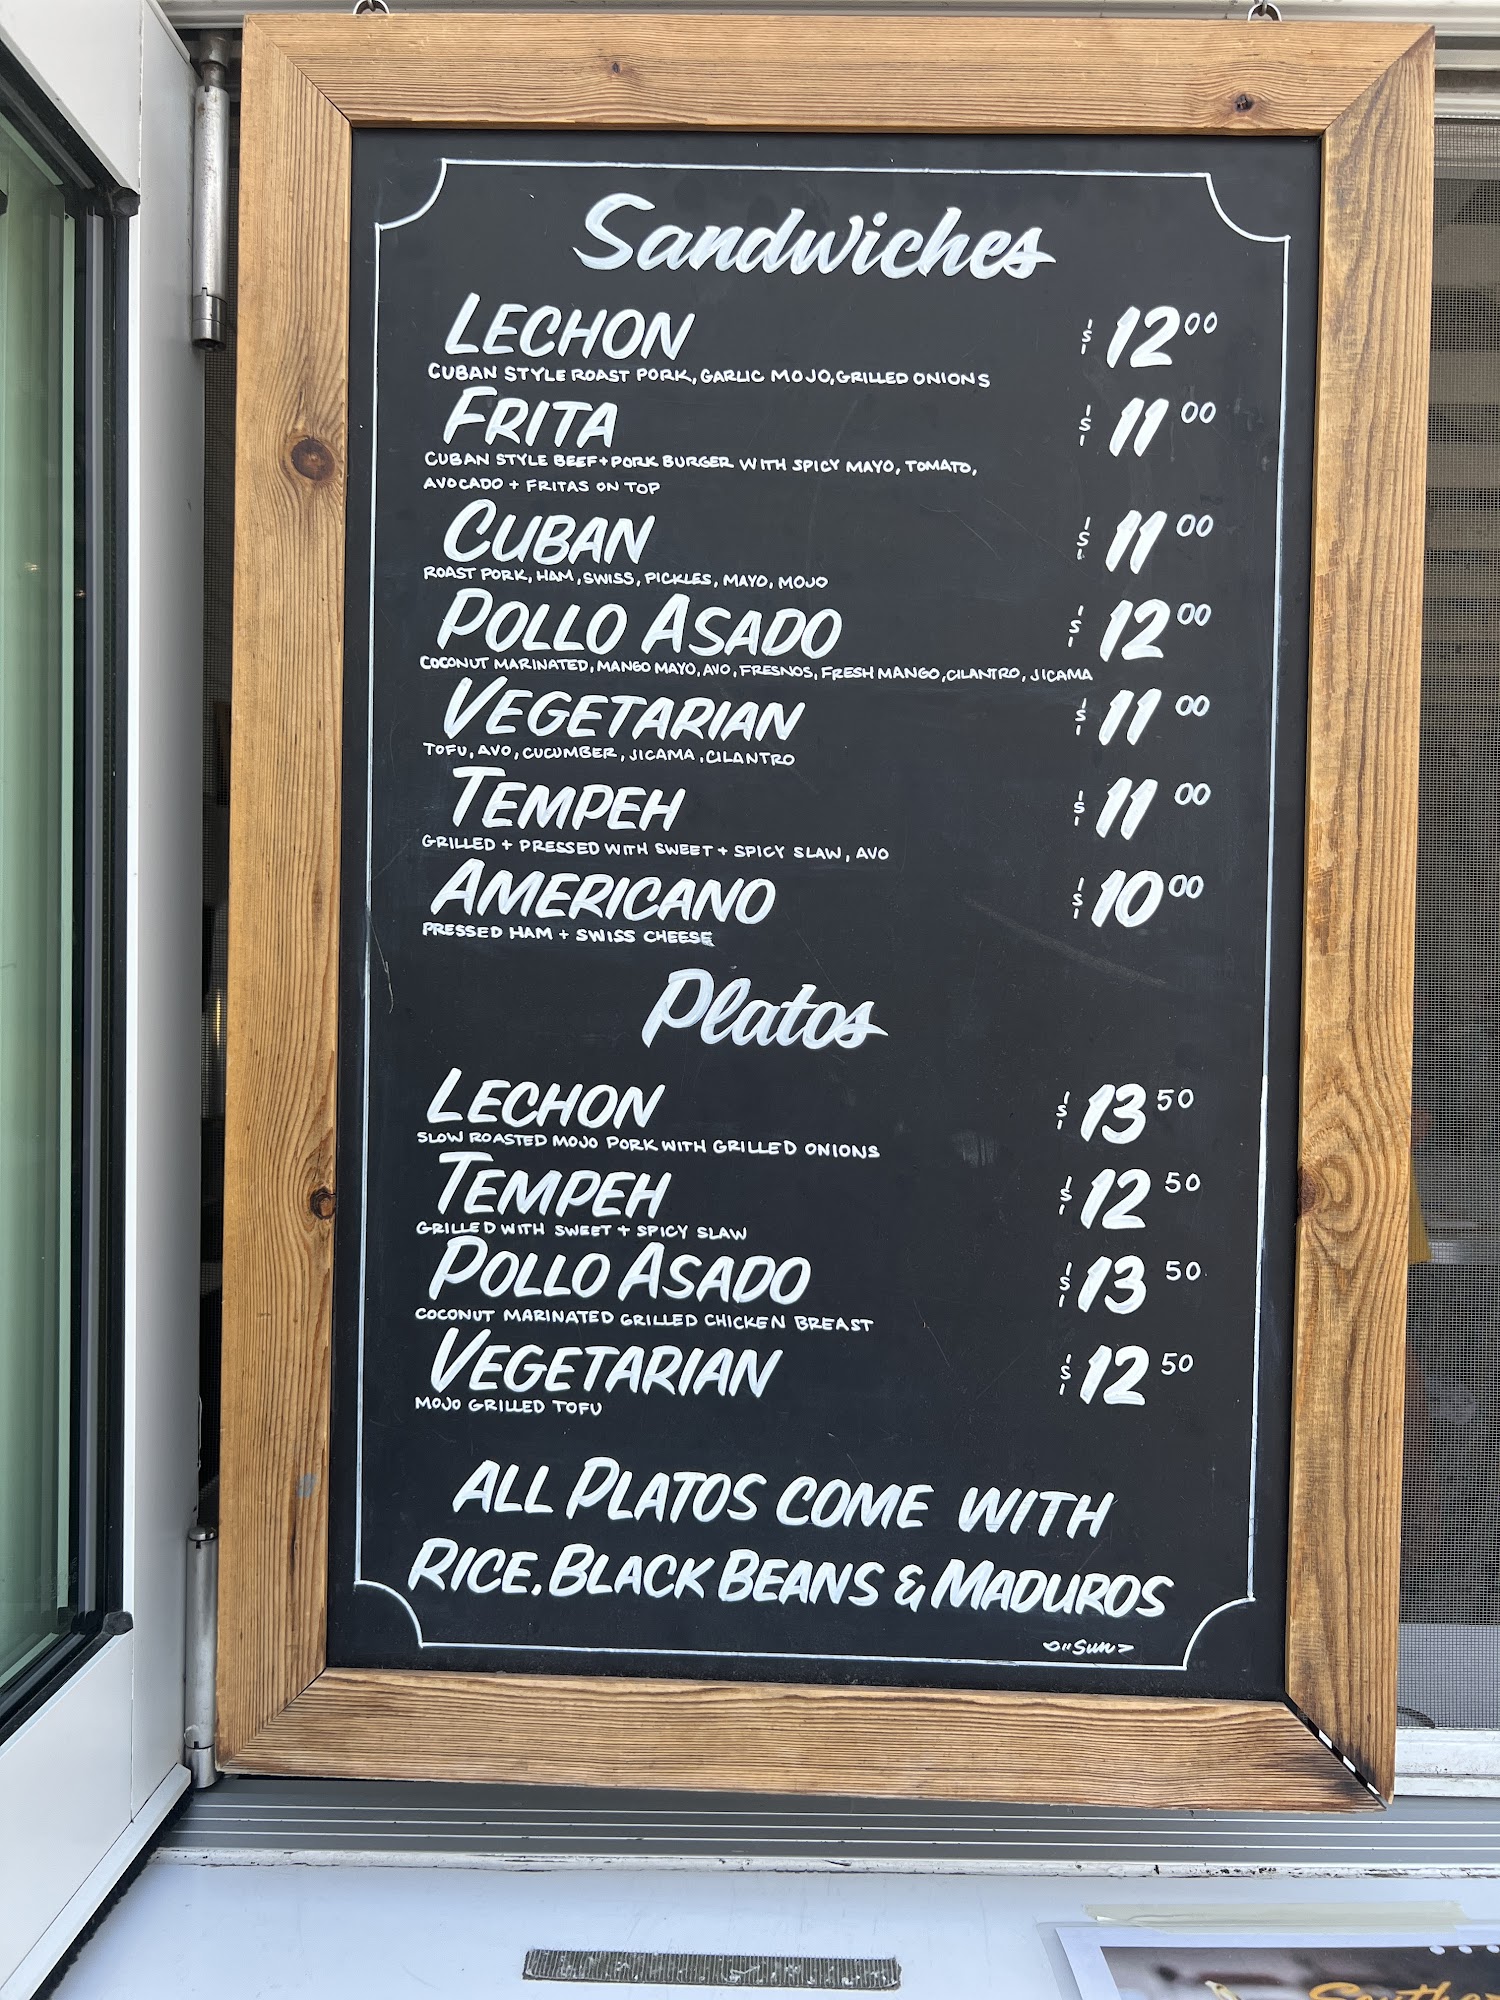 Sandwiches
LECHON $12 00
CUBAN STYLE ROAST PORK, GARLIC MOJO, GRILLED ONIONS
FRITA $11 00
CUBAN STYLE BEEF + PORK BURGER WITH SPICY MAYO, TOMATO,
AVOCADO + FRITAS ON TOP
CUBAN $11 00
ROAST PORK, HAM, SWISS, PICKLES, MAYO, MOJO
POLLO ASADO $12 00
COCONUT MARINATED, MANGO MAYO, AVO, FRESNOS, FRESH MANGO, CILANTRO, JICAMA
VEGETARIAN $11 00
TOFU, AVO, CUCUMBER, JICAMA, CILANTRO
TEMPEH $11 00
GRILLED + PRESSED WITH SWEET + SPICY SLAW, AVO
AMERICANO $10 00
PRESSED HAM + SWISS CHEESE
Platos
LECHON $13 50
SLOW ROASTED MOJO PORK WITH GRILLED ONIONS
TEMPEH $12 50
GRILLED WITH SWEET + SPICY SLAW
POLLO ASADO $13 50
COCONUT MARINATED GRILLED CHICKEN BREAST
VEGETARIAN $12 50
MOJO GRILLED TOFU
ALL PLATOS COME WITH
RICE, BLACK BEANS & MADUROS